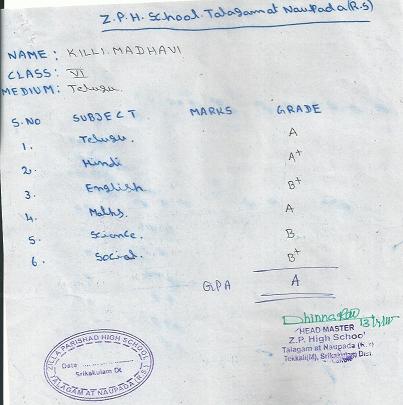 Z.P.H. School. Talagam at Naupada (R.S)
NAME: KILLI. MADHAVI
CLASS: VI
MEDIUM: Telugu.
S.NO SUBJECT MARKS GRADE
1. Telugu. A
2. Hindi A+
3. English B+
4. Maths. A
5. Science. B
6. Social. B+
GPA A
HEAD MASTER
Z.P. High School
Talagam at Naupada (R.S)
Tekkali(M), Srikakulam Dist.
ZILLA PARISHAD HIGH SCHOOL
Date
Srikakulam Dt
TALAGAM AT NAUPADA (R.S.)